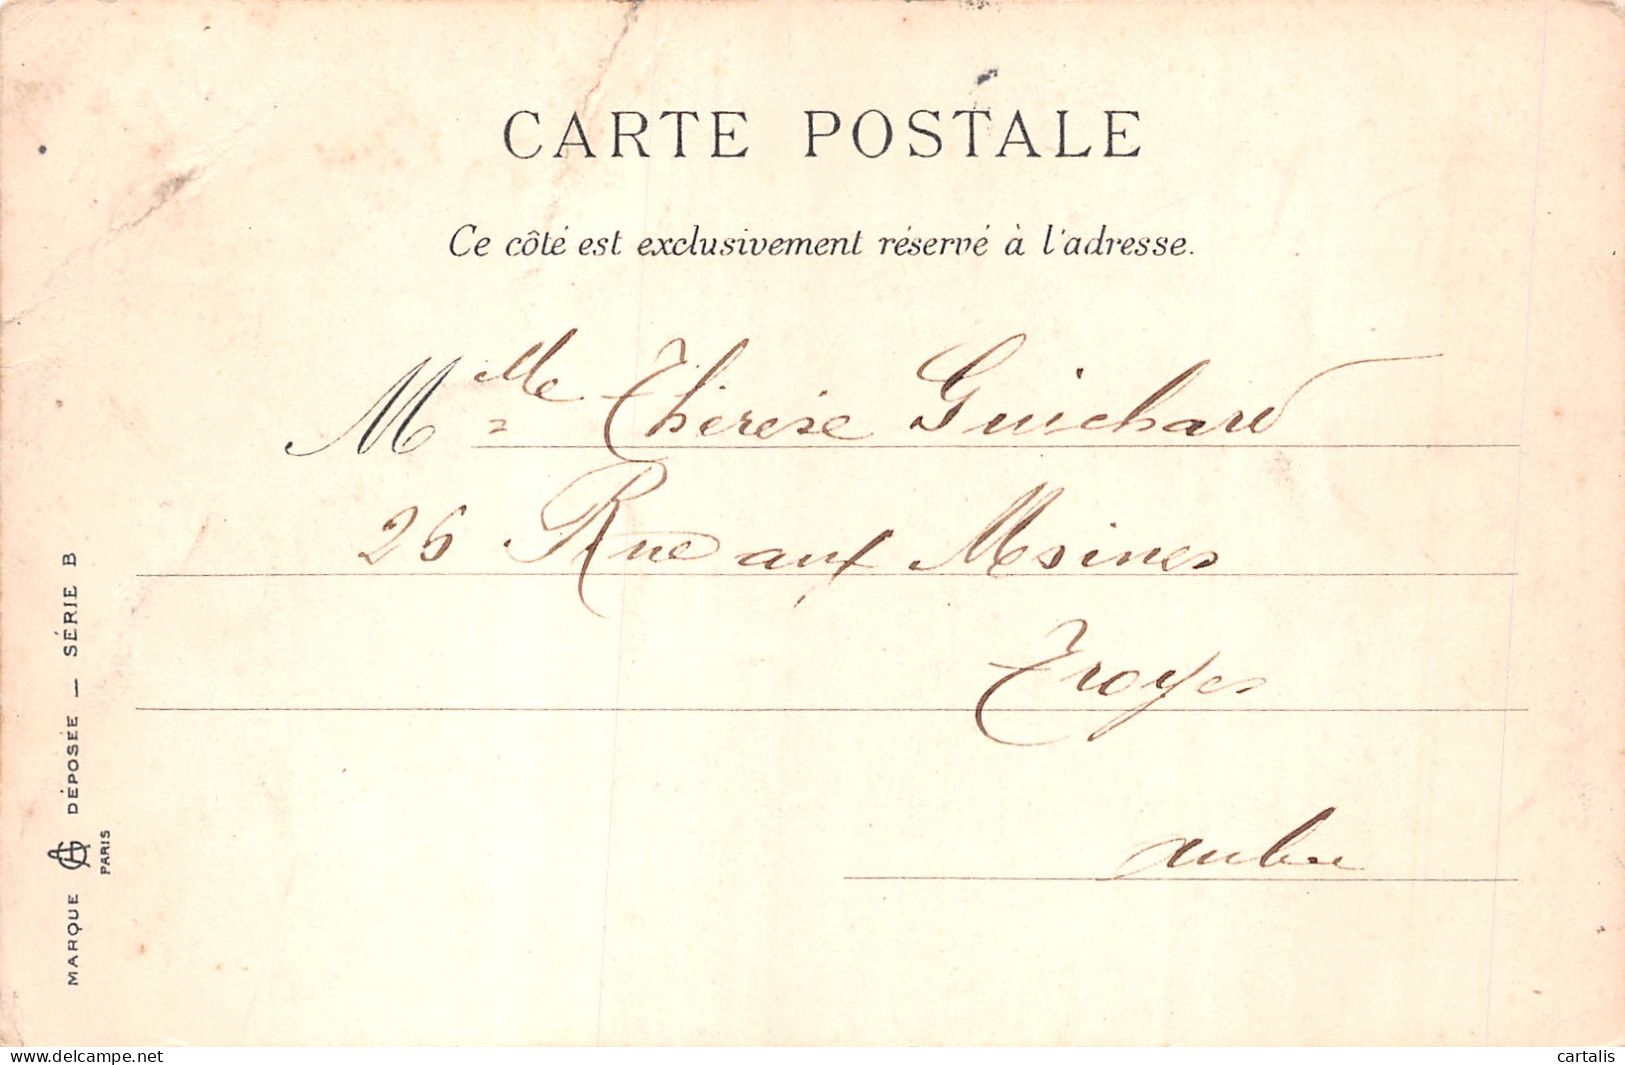 CARTE POSTALE
Ce côté est exclusivement réservé à l'adresse.
Mlle Thérèse Guichard
26 Rue aux Moines
Troyes
Aube
MARQUE DÉPOSÉE — SÉRIE B
PARIS
www.delcampe.net
cartalis